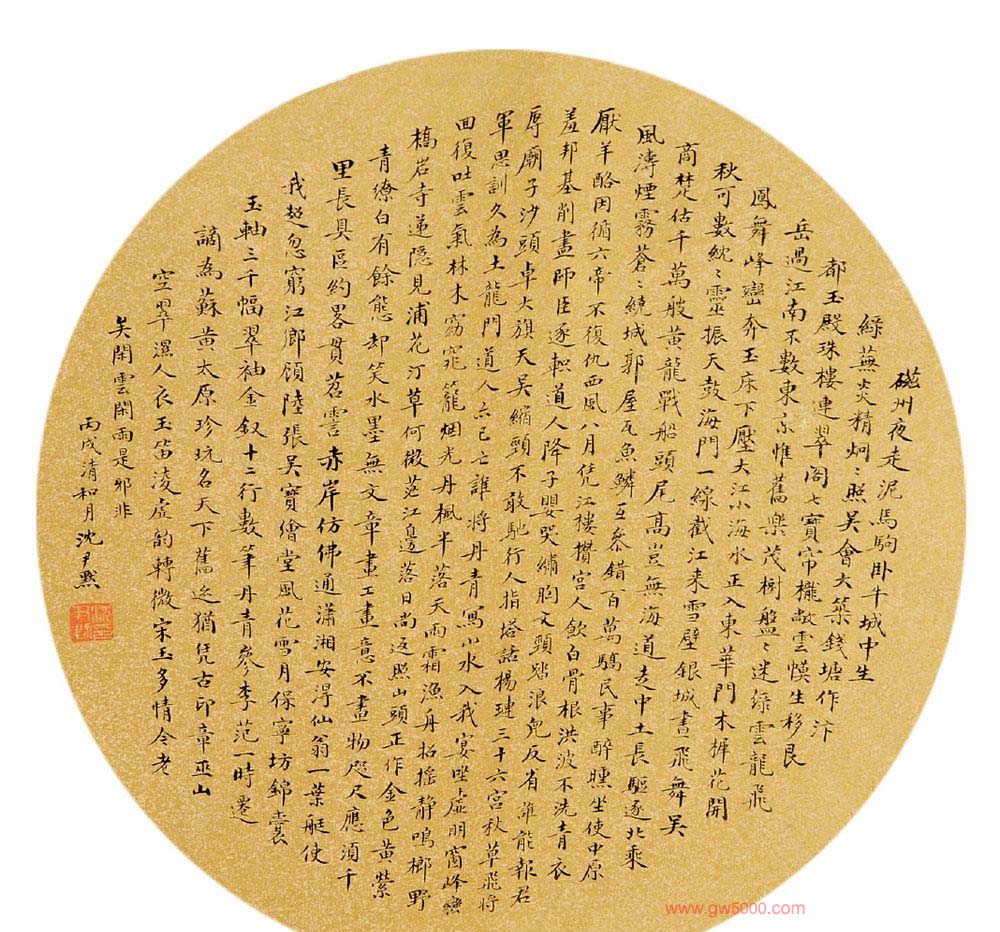 磁州夜走泥馬駒卧牛城中生
綠蕪炎精炯〻照吳會大築錢塘作汴
都玉殿珠樓連翠閣七寶帘櫳敞雲幙生移艮
岳過江南不數東京惟舊樂茂樹盤〻迷綠雲龍飛
鳳舞峰巒奔玉床下壓大江小海水正入東華門木樨花開
秋可數紞〻靈振天鼓海門一線截江来雪壁銀城晝飛舞吳
商楚估千萬艘黄龍戰船頭尾高豈無海道走中土長驅逐北乘
風濤煙霧蒼〻繞城郭屋瓦魚鱗互參錯百萬驕民事醉曛坐使中原
厭羊酪因循六帝不復仇西風八月凭江樓攢宮人飲白骨根洪波不洗青衣
羞邦基削盡師臣逐軹道人降子嬰哭繡胸文頸踏浪兒反省誰能報君
辱廟子沙頭卓大旗天吳縮頸不敢馳行人指塔話楊璉三十六宮秋草飛將
軍思訓久為土龍門道人亦已亡誰將丹青寫山水入我宴坐虛明窗峰巒
回復吐雲氣林木窈窕籠烟光丹楓半落天雨霜漁舟招搖靜鳴榔野
橋岩寺遞隱見浦花汀草何微茫江邊落日尚返照山頭正作金色黄縈
青繚白有餘態却笑水墨無文章畫工畫意不畫物咫尺應須千
里長具區約畧貫苕霅赤岸仿佛通瀟湘安得仙翁一葉艇使
我超忽窮江鄉顧陸張吳寶繪堂風花雪月保寧坊錦囊
玉軸三千幅翠袖金釵十二行數筆丹青參李范一時遷
謫為蘇黄太原珍玩名天下舊迹猶凭古印章巫山
空翠濕人衣玉笛凌虛韵轉微宋玉多情今老
矣閑雲閑雨是邪非
丙戌清和月沈尹默
www.gw5000.com